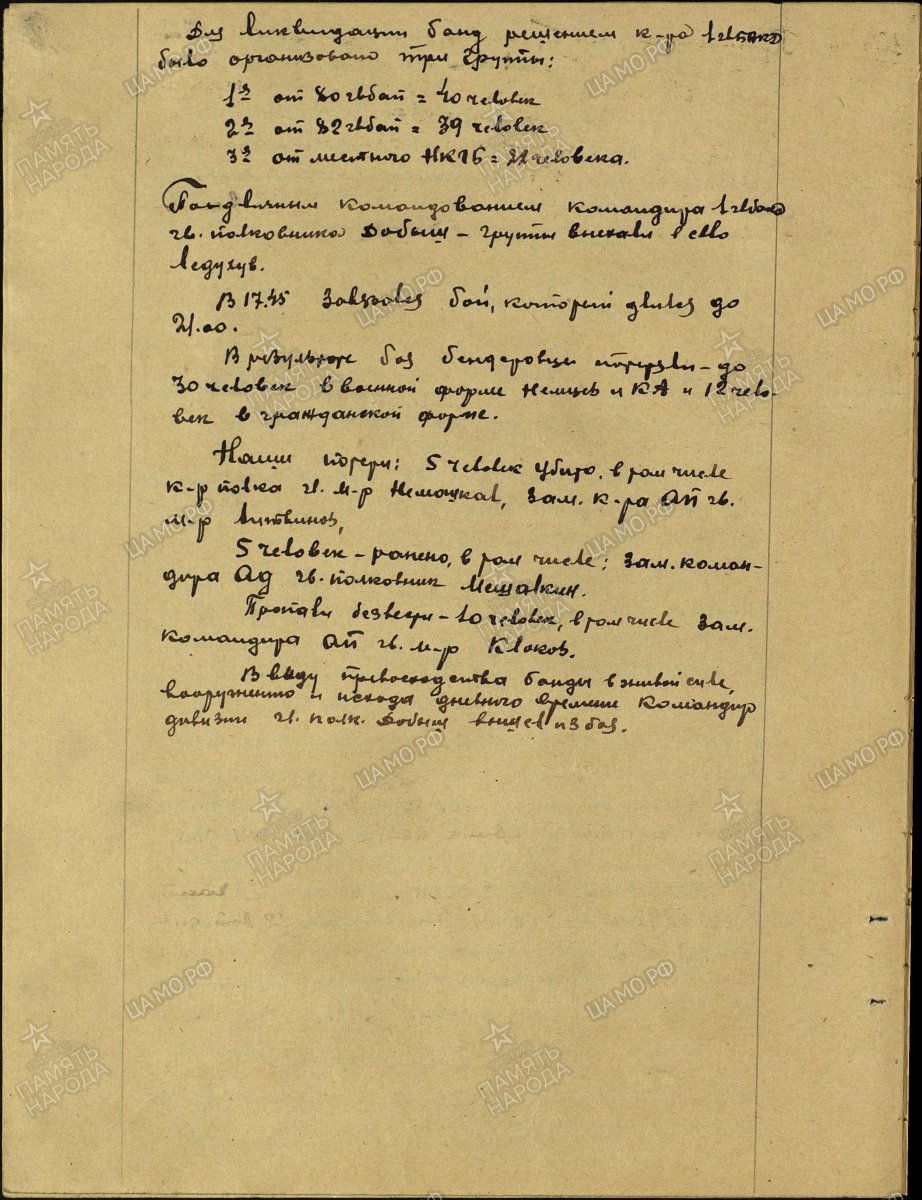 Для ликвидации банд решением к-ра 1гвБАКД
было организовано три группы:
1я от 80 гвбап = 40 человек
2я от 82 гвбап = 39 человек
3я от местного НКГБ = 22 человека.
Под личным командованием командира 1гвбакд
гв. полковника Добыш - группы выехали в село
Ледухув.
В 17.45 завязался бой, который длился до
21.00.
В результате боя бендеровцы потеряли - до
30 человек в военной форме немцев и КА и 12 чело-
век в гражданской форме.
Наши потери: 5 человек убито, в том числе
к-р полка гв. м-р Немашкал, зам. к-ра АП гв.
м-р Литвинов,
5 человек - ранено, в том числе: зам. коман-
дира АД гв. полковник Мещалкин.
Пропали безвести - 10 человек, в том числе зам.
командира АП гв. м-р Клоков.
В виду превосходства банды в живой силе,
вооружению и исхода дневного времени командир
дивизии гв. полк. Добыш вышел из боя.
ЦАМО.РФ
ПАМЯТЬ
НАРОДА